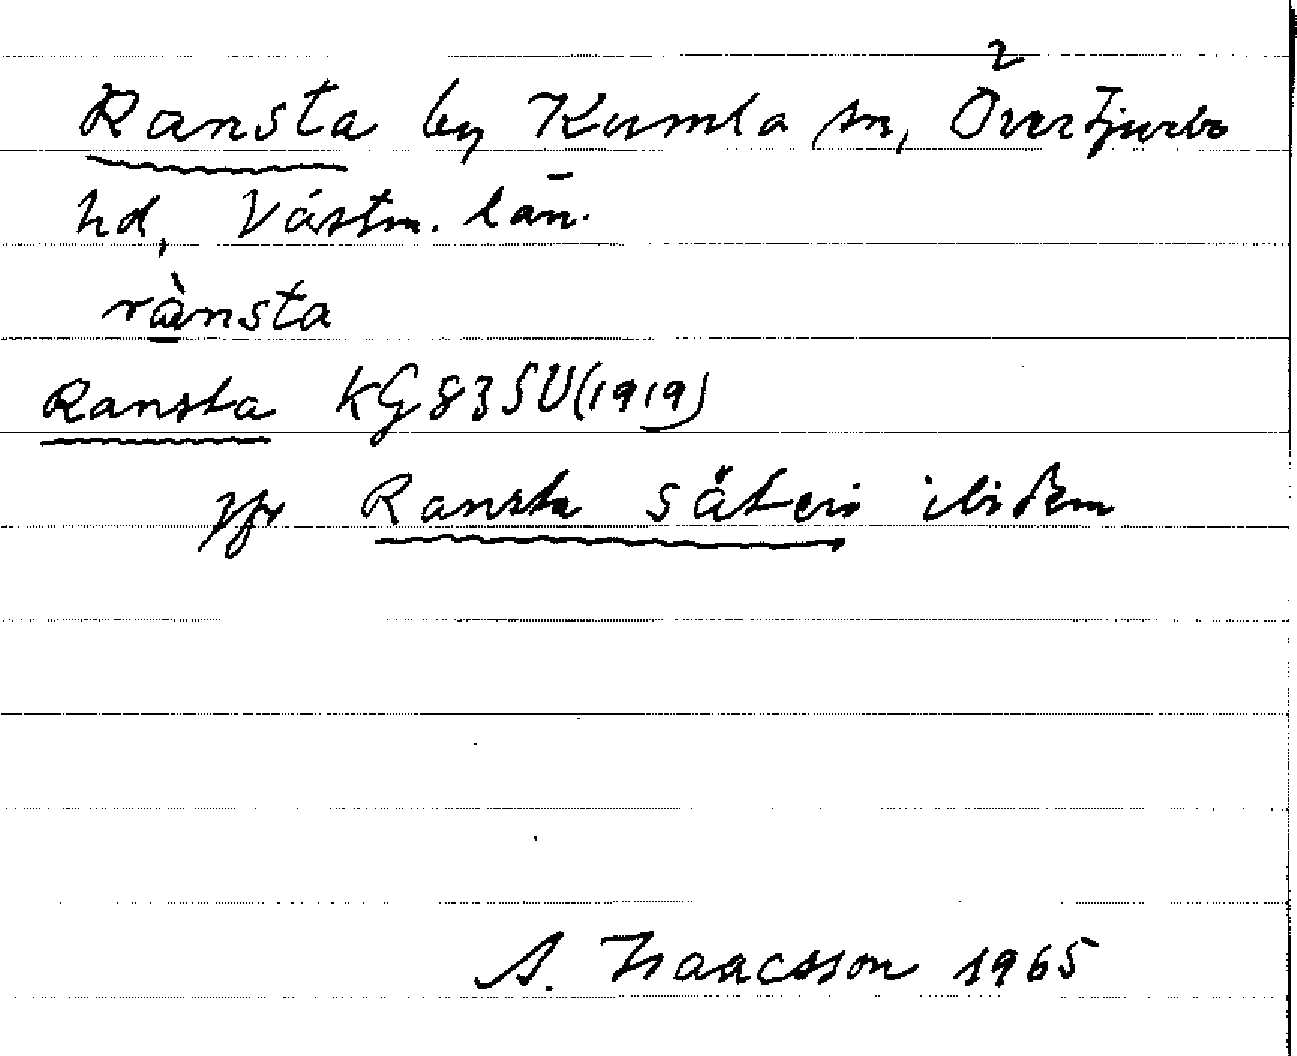 Ransta by Kumla sn, Övertjurbo
hd, Västm. län.
rànsta
Ransta KG 83 SV (1919)
jfr Ransta säteri ibidem
A. Isaacsson 1965